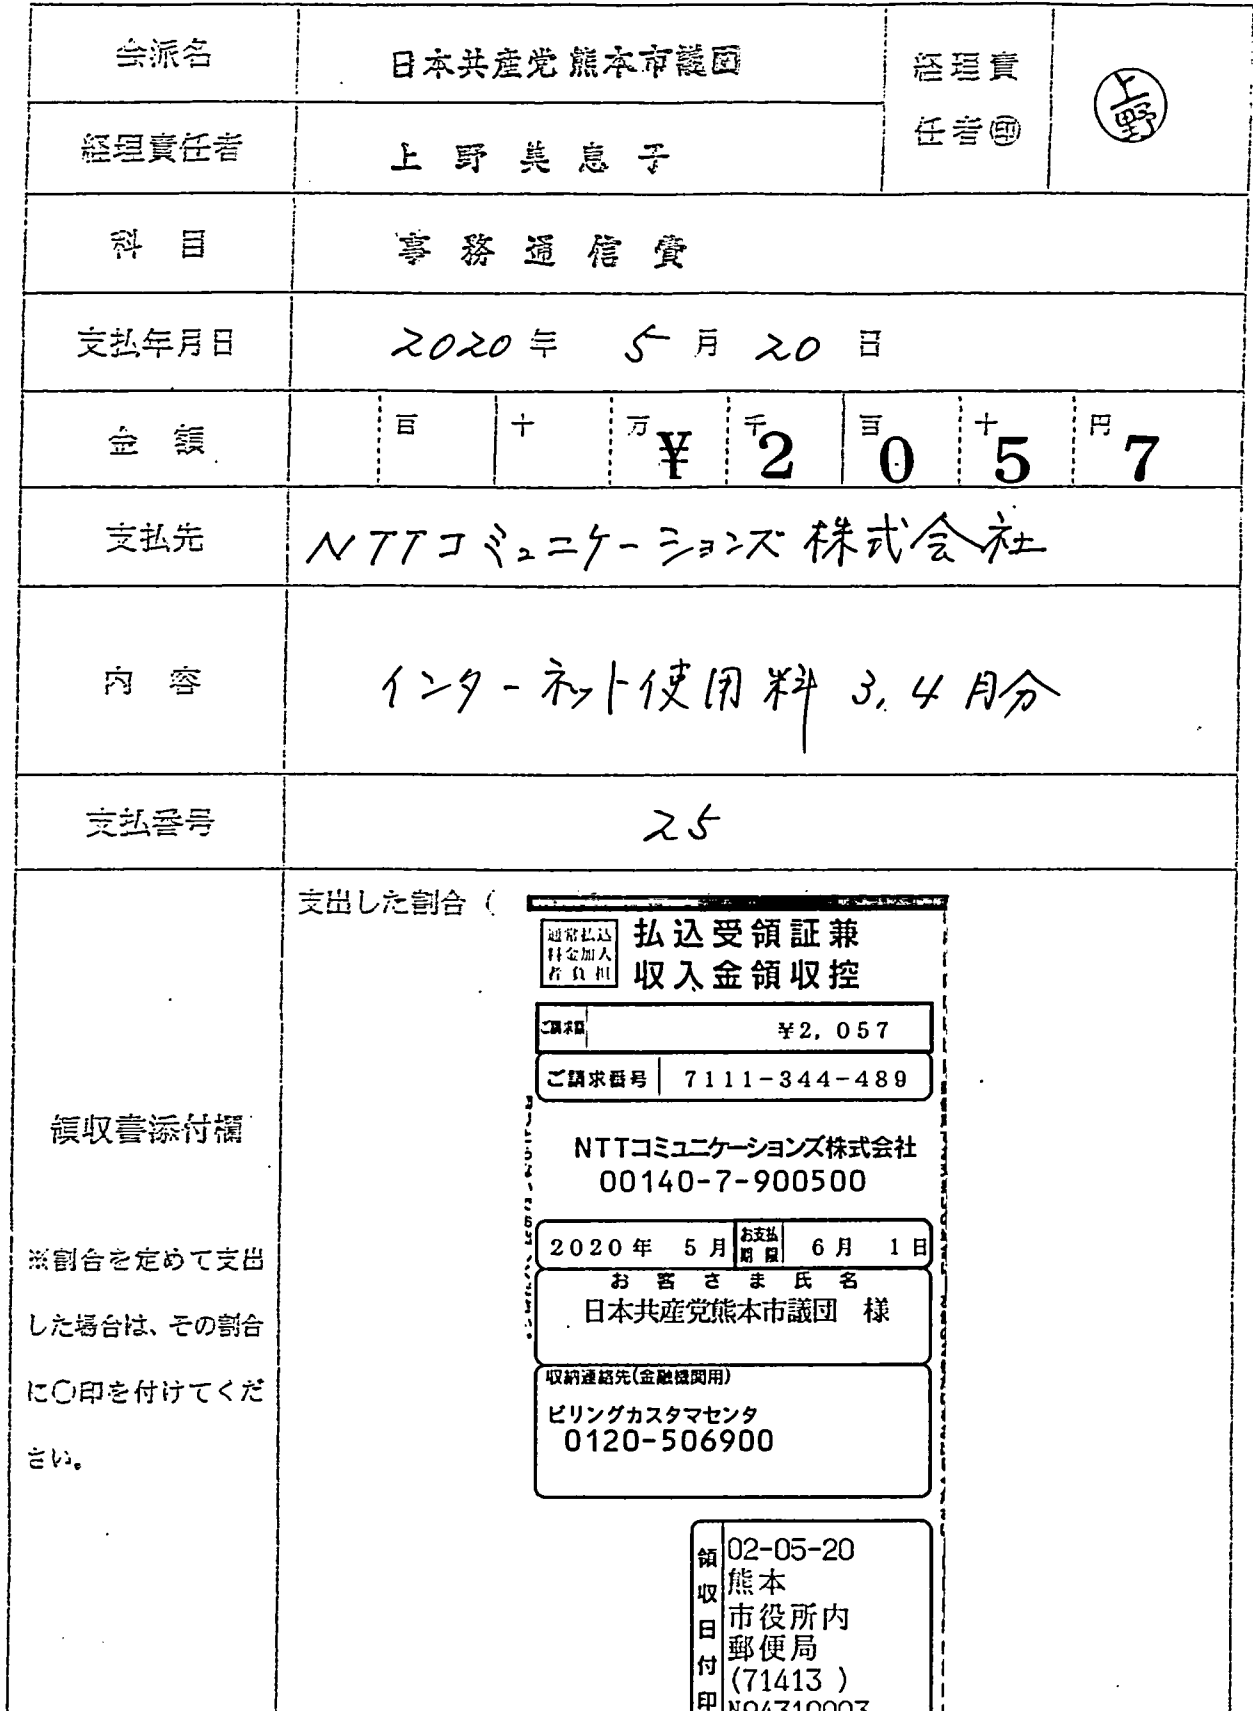 会派名 日本共産党熊本市議団 経理責任者㊞ 上野
経理責任者 上野美恵子
科目 事務通信費
支払年月日 2020年 5月 20日
金額 百 十 万 千 百 十 円 ¥2057
支払先 NTTコミュニケーションズ株式会社
内容 インターネット使用料 3.4月分
支払番号 25
領収書添付欄
※割合を定めて支出
した場合は、その割合
に○印を付けてくだ
さい。
支出した割合(
通常払込
料金加入
者負担
払込受領証兼
収入金領収控
ご請求額 ¥2,057
ご請求番号 7111-344-489
NTTコミュニケーションズ株式会社
00140-7-900500
2020年 5月 お支払期限 6月 1日
お客さま氏名
日本共産党熊本市議団 様
収納連絡先(金融機関用)
ビリングカスタマセンタ
0120-506900
領収日付印
02-05-20
熊本
市役所内
郵便局
(71413 )
N94310003